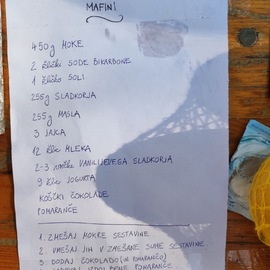 MAFINI
450g MOKE
2 žlički SODE BIKARBONE
1 žlička SOLI
255g SLADKORJA
255g MASLA
3 JAJCA
12 žlic MLEKA
2-3 vrečke VANILIJEVEGA SLADKORJA
9 žlic JOGURTA
KOŠČKI ČOKOLADE
POMARANČE
1. ZMEŠAJ MOKRE SESTAVINE
2. VMEŠAJ JIH V ZMEŠANE SUHE SESTAVINE
3. DODAJ ČOKOLADO (IN POMARANČO)